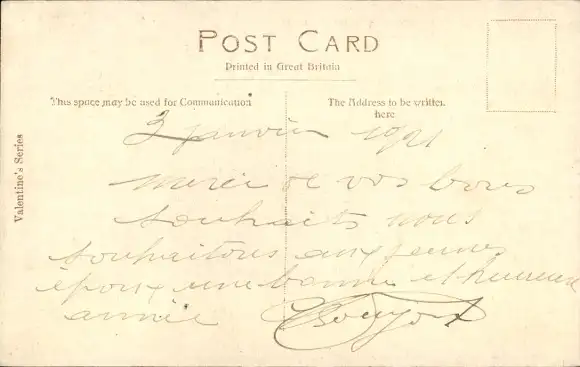 POST CARD
Printed in Great Britain
This space may be used for Communication
The Address to be written here
Valentine's Series
3 janvier 1921
Merci de vos bons
souhaits nous
souhaitons aux jeunes
époux une bonne et heureuse
année